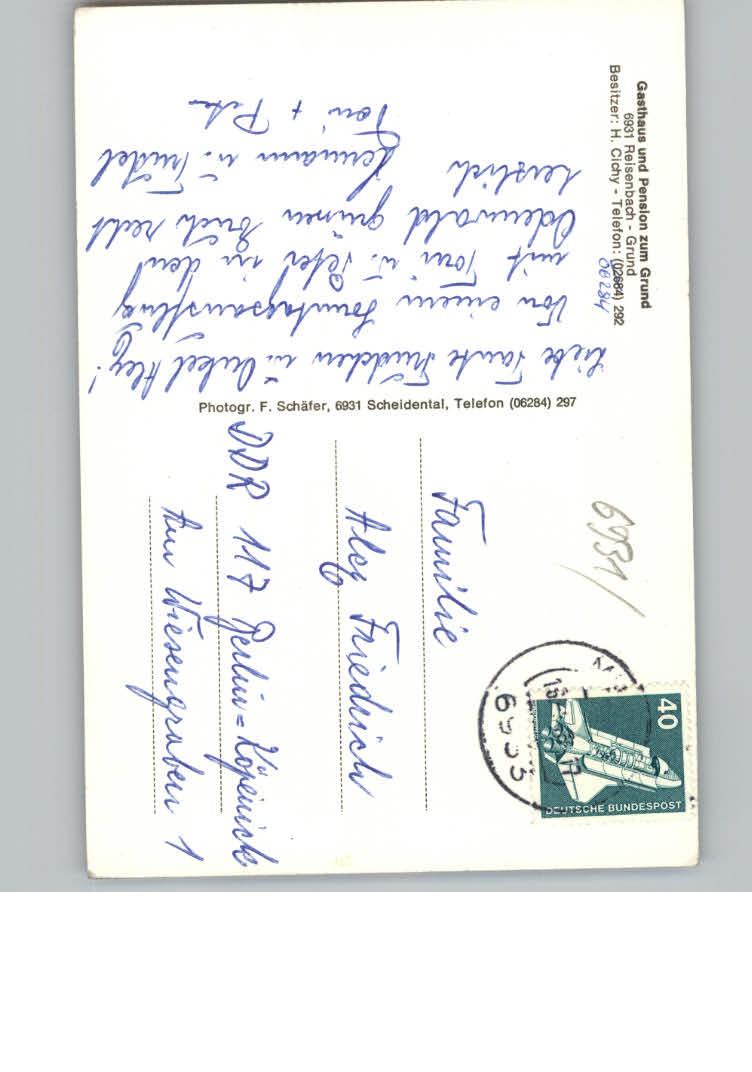 Gasthaus und Pension zum Grund
6931 Reisenbach - Grund
Besitzer: H. Cichy - Telefon: (02684) 292
06284
Liebe Tante Friedchen u. Onkel Aley!
Von einem Sonntagsausflug
mit Toni u. Peter in den
Odenwald grüssen Euch recht
herzlich
Hermann u. Friedel
Toni + Peter
Photogr. F. Schäfer, 6931 Scheidental, Telefon (06284) 297
6931/
40
DEUTSCHE BUNDESPOST
6933
Familie
Aley Friedrich
DDR 117 Berlin=Köpenick
Am Wiesengraben 1